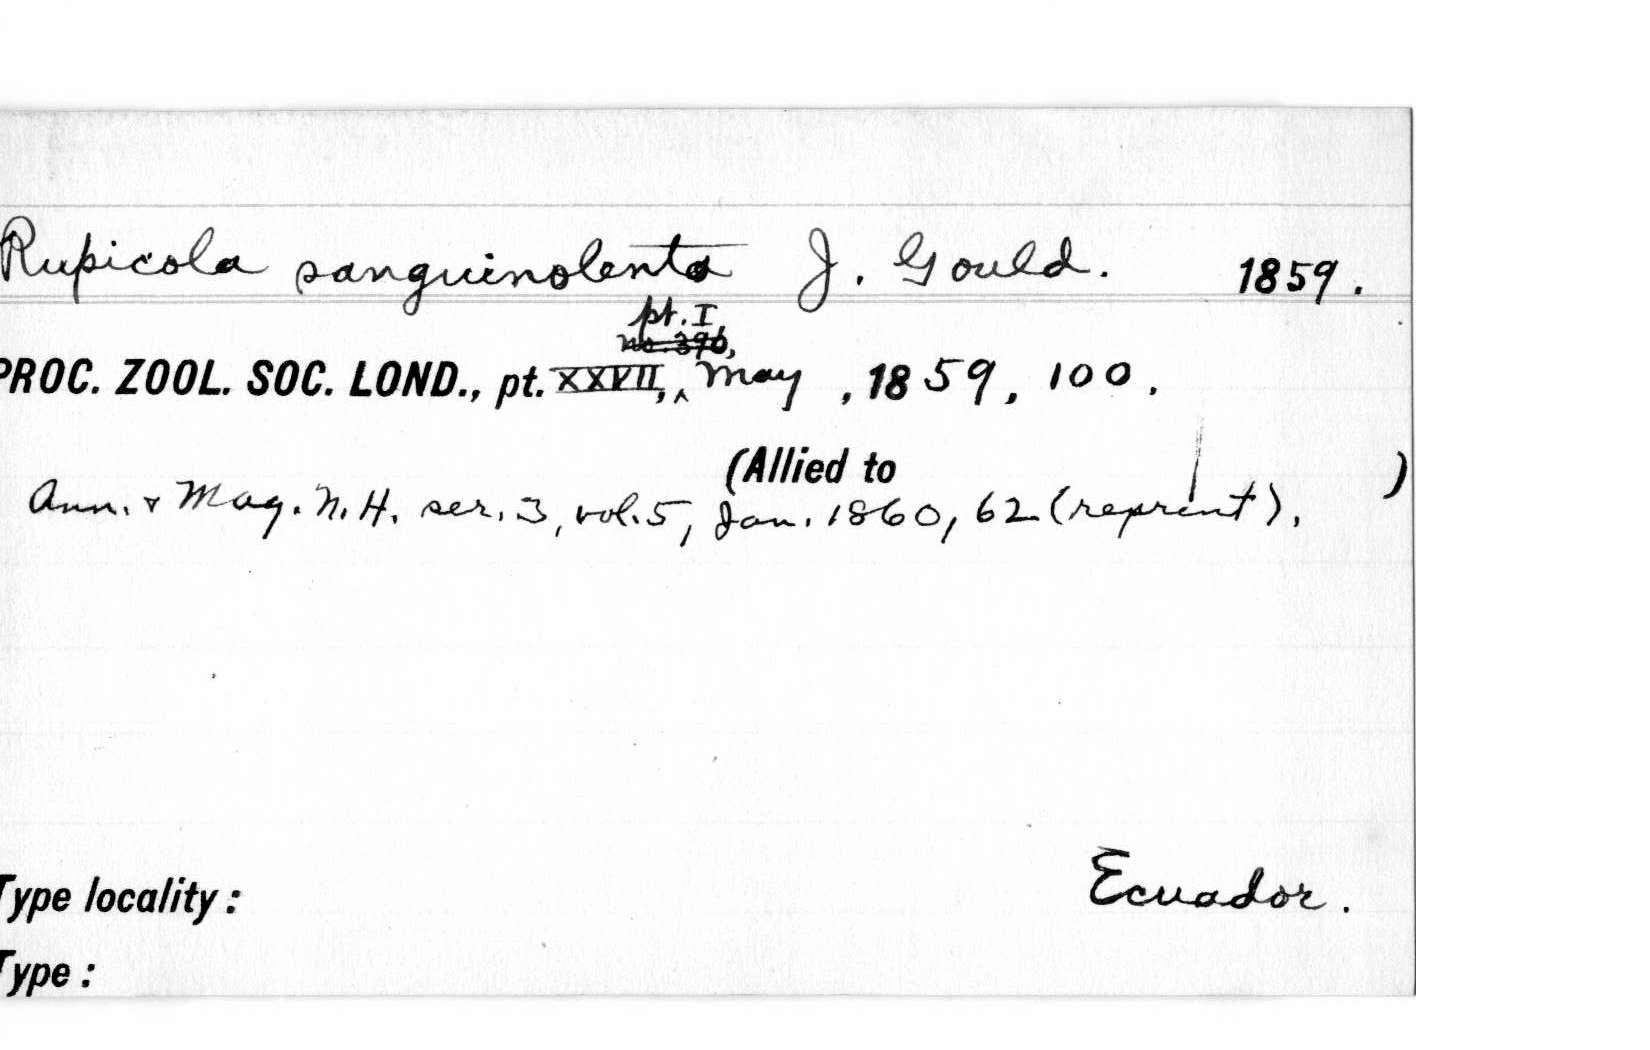 Rupicola sanguinolenta J. Gould. 1859.
pt. I,
no. 396,
PROC. ZOOL. SOC. LOND., pt. XXVII, ‸ May , 1859, 100.
(Allied to )
Ann. & Mag. N.H. ser. 3, vol. 5, Jan. 1860, 62 (reprint).
Type locality: Ecuador.
Type: